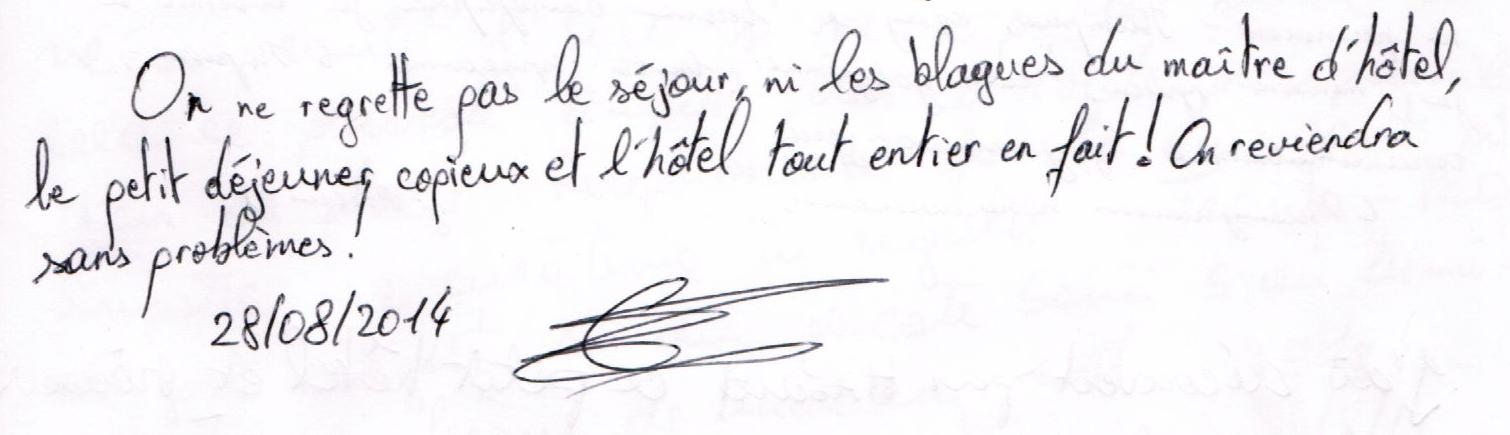 On ne regrette pas le séjour, ni les blagues du maître d'hôtel,
le petit déjeuner, copieux et l'hôtel tout entier en fait! On reviendra
sans problèmes!
28/08/2014